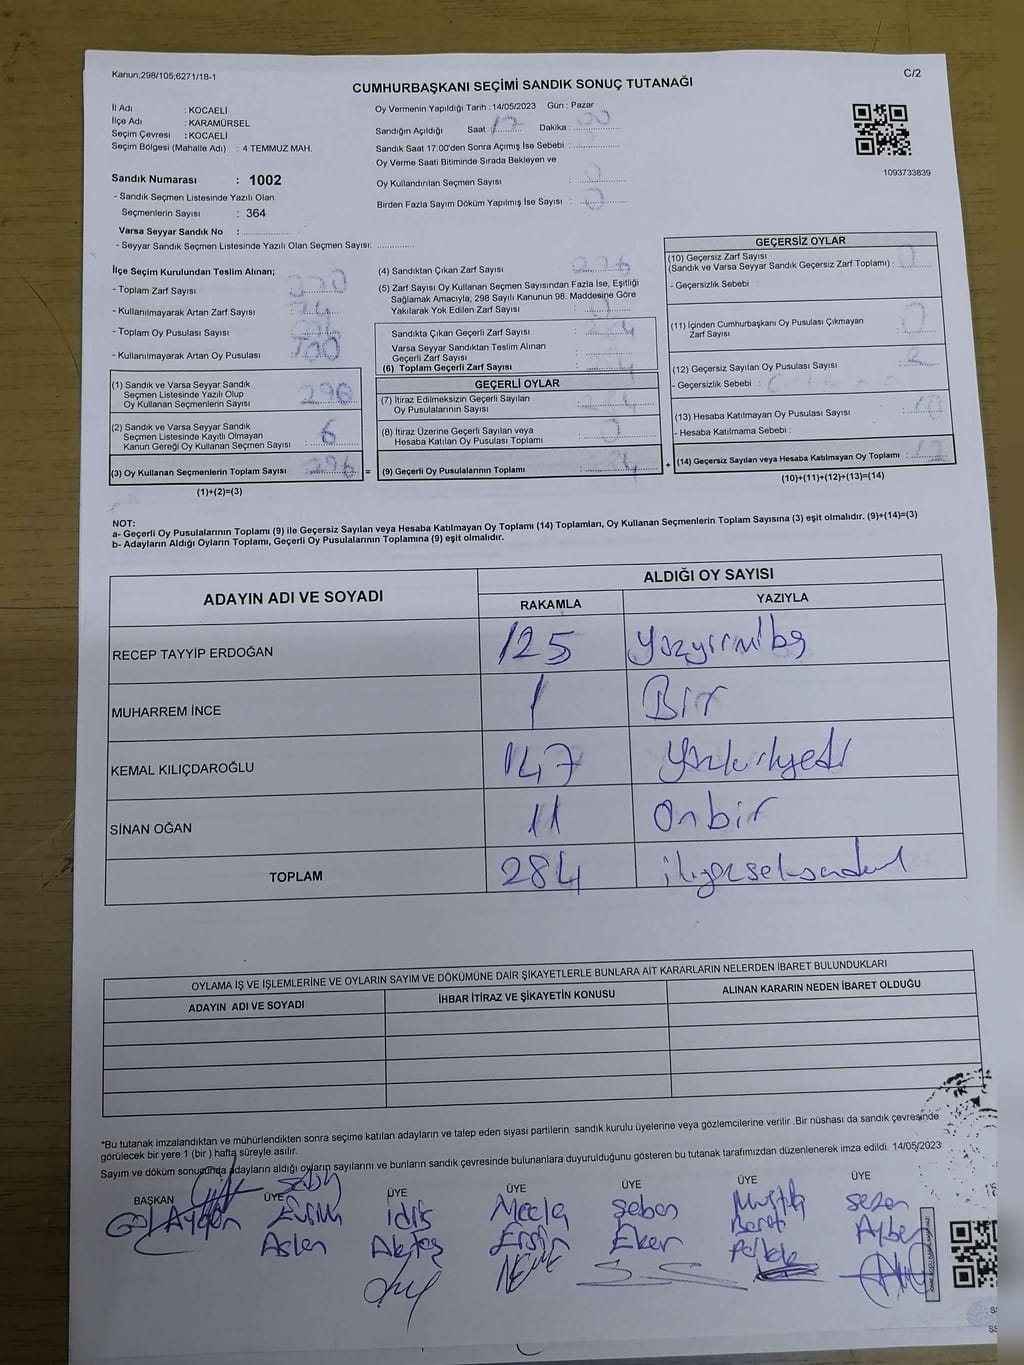 Kanun,298/105,6271/18-1
C/2
CUMHURBAŞKANI SEÇİMİ SANDIK SONUÇ TUTANAĞI
İl Adı : KOCAELİ
İlçe Adı : KARAMÜRSEL
Seçim Çevresi : KOCAELİ
Seçim Bölgesi (Mahalle Adı) : 4 TEMMUZ MAH.
Sandık Numarası : 1002
- Sandık Seçmen Listesinde Yazılı Olan
Seçmenlerin Sayısı : 364
Varsa Seyyar Sandık No :
- Seyyar Sandık Seçmen Listesinde Yazılı Olan Seçmen Sayısı:
Oy Vermenin Yapıldığı Tarih : 14/05/2023 Gün : Pazar
Sandığın Açıldığı Saat 17 Dakika : 00
Sandık Saat 17:00'den Sonra Açımış İse Sebebi :
Oy Verme Saati Bitiminde Sırada Bekleyen ve
Oy Kullandırılan Seçmen Sayısı : 0
Birden Fazla Sayım Döküm Yapılmış İse Sayısı : 0
1093733839
İlçe Seçim Kurulundan Teslim Alınan;
- Toplam Zarf Sayısı :
- Kullanılmayarak Artan Zarf Sayısı : 74
- Toplam Oy Pusulası Sayısı :
- Kullanılmayarak Artan Oy Pusulası :
(1) Sandık ve Varsa Seyyar Sandık
Seçmen Listesinde Yazılı Olup
Oy Kullanan Seçmenlerin Sayısı : 290
(2) Sandık ve Varsa Seyyar Sandık
Seçmen Listesinde Kayıtlı Olmayan
Kanun Gereği Oy Kullanan Seçmen Sayısı : 6
(3) Oy Kullanan Seçmenlerin Toplam Sayısı : 296 =
(1)+(2)=(3)
(4) Sandıktan Çıkan Zarf Sayısı : 296
(5) Zarf Sayısı Oy Kullanan Seçmen Sayısından Fazla İse, Eşitliği
Sağlamak Amacıyla; 298 Sayılı Kanunun 98. Maddesine Göre
Yakılarak Yok Edilen Zarf Sayısı : 0
Sandıkta Çıkan Geçerli Zarf Sayısı : 284
Varsa Seyyar Sandıktan Teslim Alınan
Geçerli Zarf Sayısı :
(6) Toplam Geçerli Zarf Sayısı :
GEÇERLİ OYLAR
(7) İtiraz Edilmeksizin Geçerli Sayılan
Oy Pusulalarının Sayısı : 284
(8) İtiraz Üzerine Geçerli Sayılan veya
Hesaba Katılan Oy Pusulası Toplamı : 0
(9) Geçerli Oy Pusulalarının Toplamı : 284 +
GEÇERSİZ OYLAR
(10) Geçersiz Zarf Sayısı
(Sandık ve Varsa Seyyar Sandık Geçersiz Zarf Toplamı) : 0
- Geçersizlik Sebebi :
(11) İçinden Cumhurbaşkanı Oy Pusulası Çıkmayan
Zarf Sayısı : 0
(12) Geçersiz Sayılan Oy Pusulası Sayısı : 2
- Geçersizlik Sebebi :
(13) Hesaba Katılmayan Oy Pusulası Sayısı : 10
- Hesaba Katılmama Sebebi :
(14) Geçersiz Sayılan veya Hesaba Katılmayan Oy Toplamı : 12
(10)+(11)+(12)+(13)=(14)
NOT:
a- Geçerli Oy Pusulalarının Toplamı (9) ile Geçersiz Sayılan veya Hesaba Katılmayan Oy Toplamı (14) Toplamları, Oy Kullanan Seçmenlerin Toplam Sayısına (3) eşit olmalıdır. (9)+(14)=(3)
b- Adayların Aldığı Oyların Toplamı, Geçerli Oy Pusulalarının Toplamına (9) eşit olmalıdır.
ADAYIN ADI VE SOYADI
ALDIĞI OY SAYISI
RAKAMLA YAZIYLA
RECEP TAYYİP ERDOĞAN 125 Yüzyirmibeş
MUHARREM İNCE 1 Bir
KEMAL KILIÇDAROĞLU 147 Yüzkırkyedi
SİNAN OĞAN 11 Onbir
TOPLAM 284 ikiyüzseksendört
OYLAMA İŞ VE İŞLEMLERİNE VE OYLARIN SAYIM VE DÖKÜMÜNE DAİR ŞİKAYETLERLE BUNLARA AİT KARARLARIN NELERDEN İBARET BULUNDUKLARI
ADAYIN ADI VE SOYADI İHBAR İTİRAZ VE ŞİKAYETİN KONUSU ALINAN KARARIN NEDEN İBARET OLDUĞU
*Bu tutanak imzalandıktan ve mühürlendikten sonra seçime katılan adayların ve talep eden siyasi partilerin sandık kurulu üyelerine veya gözlemcilerine verilir .Bir nüshası da sandık çevresinde
görülecek bir yere 1 (bir ) hafta süreyle asılır.
Sayım ve döküm sonucunda adayların aldığı oyların sayılarını ve bunların sandık çevresinde bulunanlara duyurulduğunu gösteren bu tutanak tarafımızdan düzenlenerek imza edildi. 14/05/2023
BAŞKAN ÜYE ÜYE ÜYE ÜYE ÜYE ÜYE
Aydın idris Şeben Sezen
Aslan Aktaş Ersin Eker Berat